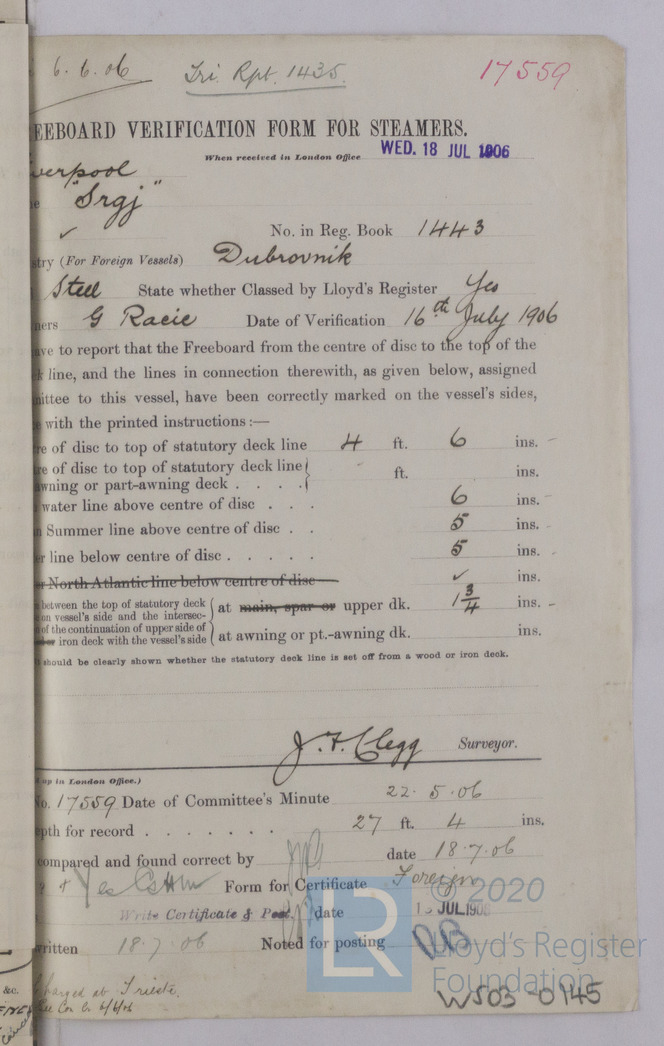 6.6.06 Tri. Rpt. 1435. 17559
EEBOARD VERIFICATION FORM FOR STEAMERS.
When received in London Office WED. 18 JUL 1906
verpool
e "Srgj"
✓ No. in Reg. Book 1443
stry (For Foreign Vessels) Dubrovnik
Steel State whether Classed by Lloyd's Register Yes
ners G Racic Date of Verification 16th July 1906
ave to report that the Freeboard from the centre of disc to the top of the
k line, and the lines in connection therewith, as given below, assigned
mittee to this vessel, have been correctly marked on the vessel's sides,
e with the printed instructions:—
re of disc to top of statutory deck line 4 ft. 6 ins.
re of disc to top of statutory deck line
wning or part-awning deck . . . . ft. ins.
water line above centre of disc . . . 6 ins.
n Summer line above centre of disc . . 5 ins.
er line below centre of disc . . . . . 5 ins.
er North Atlantic line below centre of disc ✓ ins.
between the top of statutory deck
on vessel's side and the intersec- at main, spar or upper dk. 1 3/4 ins.
of the continuation of upper side of
iron deck with the vessel's side at awning or pt.-awning dk. ins.
should be clearly shown whether the statutory deck line is set off from a wood or iron deck.
J. F. Clegg Surveyor.
up in London Office.)
No. 17559 Date of Committee's Minute 22.5.06
epth for record . . . . . . . 27 ft. 4 ins.
compared and found correct by date 18.7.06
? Yes Form for Certificate Foreign
Write Certificate & Post. date JUL 190
written 18.7.06 Noted for posting
&c.
harged at Trieste.
6/6/06
© 2020
Lloyd's Register
Foundation
LR
WS03-0145